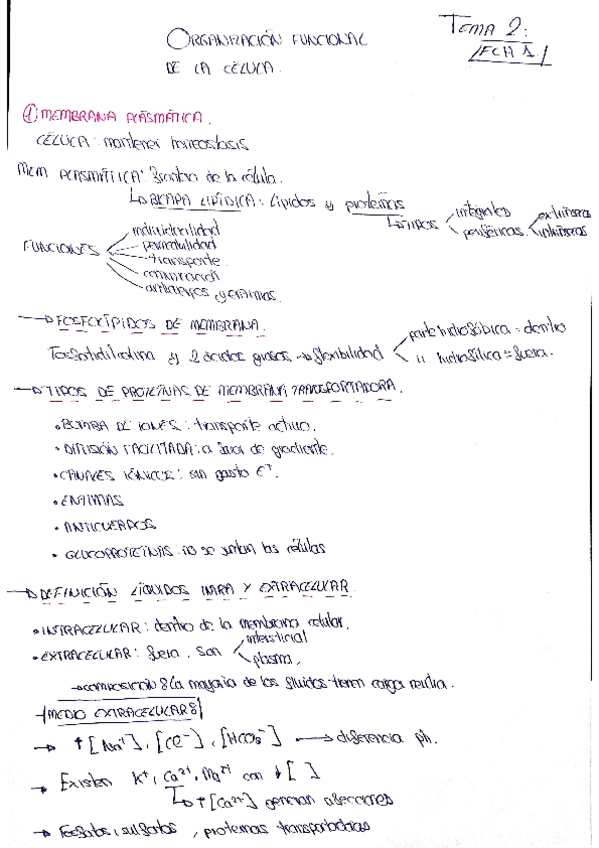 ORGANIZACIÓN FUNCIONAL
DE LA CÉLULA.
TEMA 2:
FCH 1.
① MEMBRANA PLASMÁTICA.
CÉLULA: mantener homeostasis
MEM PLASMÁTICA: Frontera de la célula.
↳ BICAPA LIPÍDICA: Lípidos y proteínas
↳ TIPOS
integrales
periféricas
extrínsecas
intrínsecas
FUNCIONES
individualidad
permeabilidad
transporte
comunicación
antígenos y enzimas.
→ FOSFOLÍPIDOS DE MEMBRANA.
Fosfatidilcolina y 2 ácidos grasos → flexibilidad
parte hidrofóbica = dentro
" hidrofílica = fuera.
→ TIPOS DE PROTEÍNAS DE MEMBRANA TRANSPORTADORA.
• BOMBA DE IONES: transporte activo.
• DIFUSIÓN FACILITADA: a favor de gradiente.
• CANALES IÓNICOS: sin gasto E↑.
• ENZIMAS
• ANTICUERPOS
• GLUCOPROTEÍNAS: no se juntan las células
→ DEFINICIÓN LÍQUIDOS INTRA Y EXTRACELULAR
• INTRACELULAR: dentro de la membrana celular.
• EXTRACELULAR: fuera. Son
intersticial
plasma.
→ COMPOSICIÓN: la mayoría de los fluidos tienen carga neutra.
MEDIO EXTRACELULAR:
→ ↑[Na⁺], [Cl⁻], [HCO₃⁻] → diferencia ph.
→ Existen K⁺, Ca²⁺, Mg²⁺ con ↓[ ]
↳ ↑[Ca²⁺] generan afecciones
→ Fosfatos, sulfatos, proteínas transportadoras